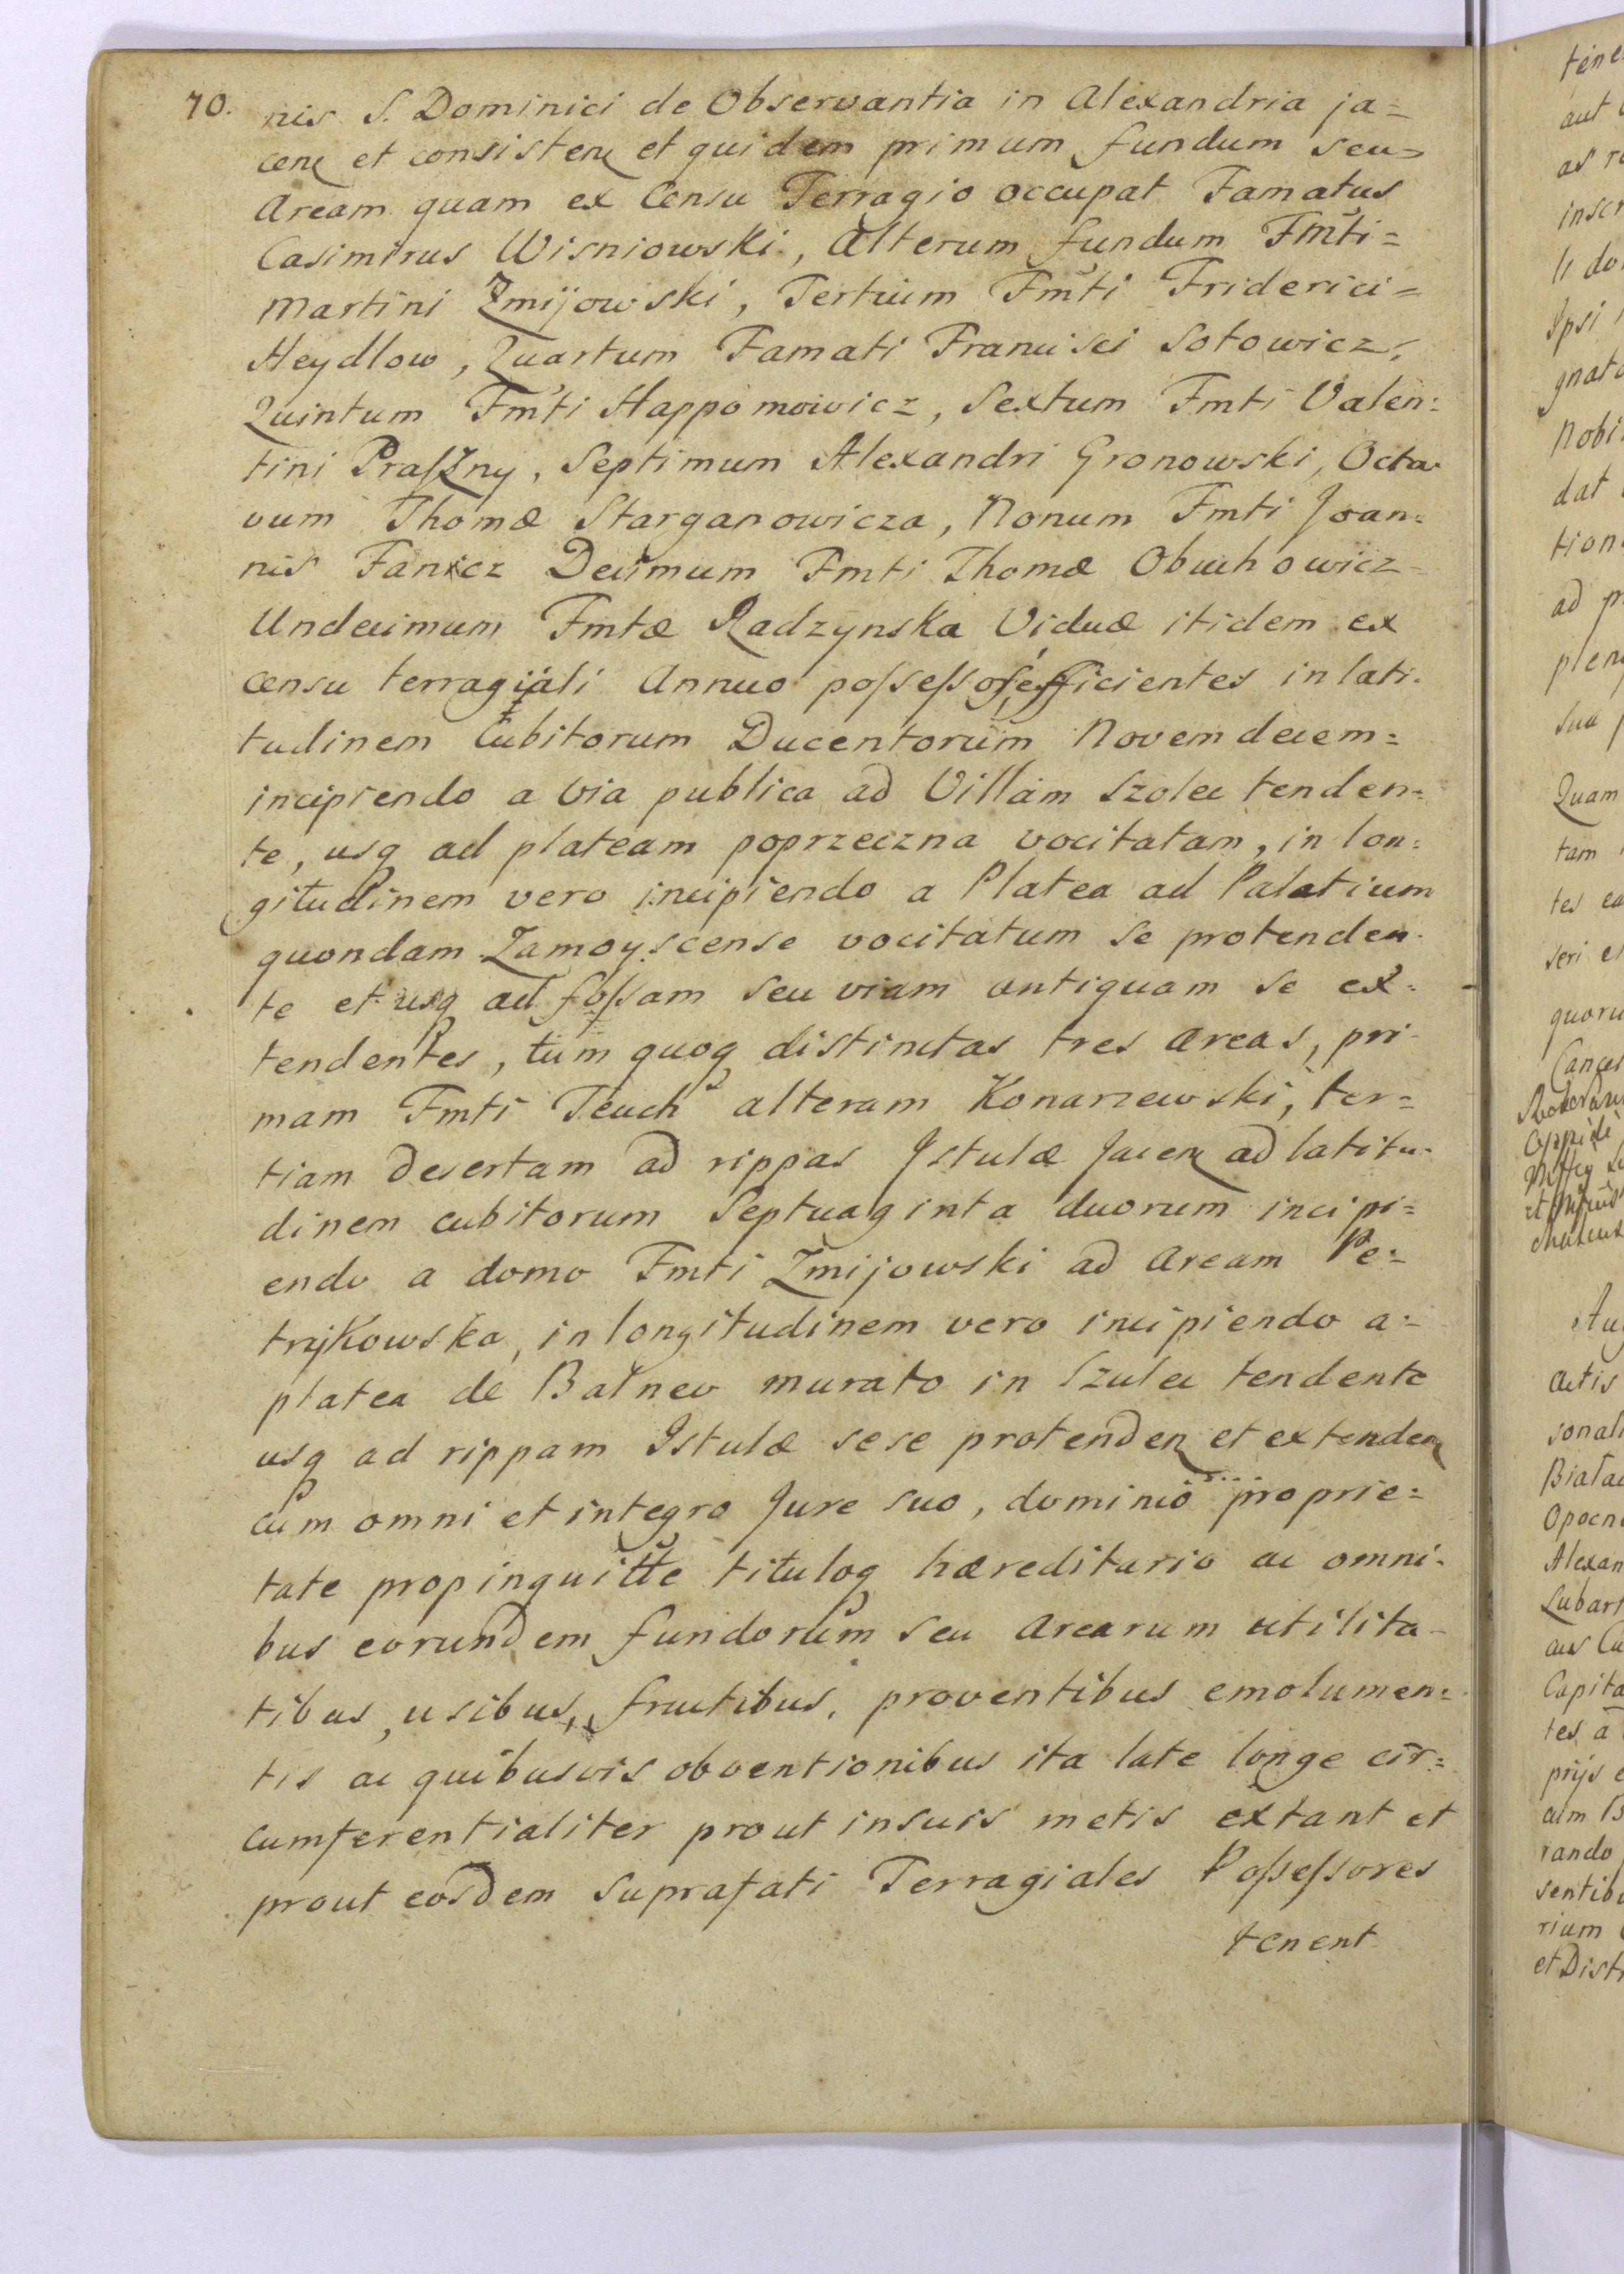 70.
nis S. Dominici de Observantia in Alexandria ja=
cen et consisten et quidem primum fundum seu=
Aream quam ex Censu Terragio occupat Famatus
Casimirus Wisniowski, Alterum fundum Fmti=
Martini Zmijowski, Tertium Fmti Friderici=
Heydlow, Quartum Famati Francisci Sotowicz,
Quintum Fmti Happomowicz, Sextum Fmti Valen=
tini Praſzny, Septimum Alexandri Gronowski, Octa
vum Thomæ Starganowicza, Nonum Fmti Joan=
nis Fanicz Decimum Fmti Thomæ Obuchowicz
Undecimum Fmtæ Radzynska Viduæ itidem ex
censu terragiali Annuo poſseſsos, efficientes in lati=
tudinem Cubitorum Ducentorum Novemdecem=
incipiendo a via publica ad Villam Szolec tenden=
te, usq ad plateam poprzeczna vocitatam, in lon=
gitudinem vero incipiendo a Platea ad Palatium
quondam Zamoyscense vocitatum se protenden
te et usq ad foſsam seu viam antiquam se ex=
tendentes, tum quoq distinctas tres areas, pri
mam Fmti Teuch alteram Konarzewski, ter=
tiam desertam ad rippas Istulæ Jacen ad latitu=
dinem cubitorum Septuaginta duorum incipi=
endo a domo Fmti Zmijowski ad Aream Pe=
trykowska, in longitudinem vero incipiendo a=
platea de Balneo murato in Szulec tendente
usq ad rippam Istulæ sese protenden et extenden
cum omni et integro Jure suo, dominio proprie=
tate propinquitte tituloq hæreditario ac omni=
bus eorundem fundorum seu Arearum utilita=
tibus, usibus, fructibus, proventibus emolumen=
tis ac quibusvis obventionibus ita late longe cir=
cumferentialiter prout in suis metis extant et
prout eosdem suprafati Terragiales Poſseſsores
tenent
aut
inscr
Ipsi
Nobi
dat
tion
ad p
Quam
tam
tes ea
seri et
quoru
Actis
sonali
Opocn
Alexan
Lubart
Capita
cum B
rando
sentibu
rium
et Distr